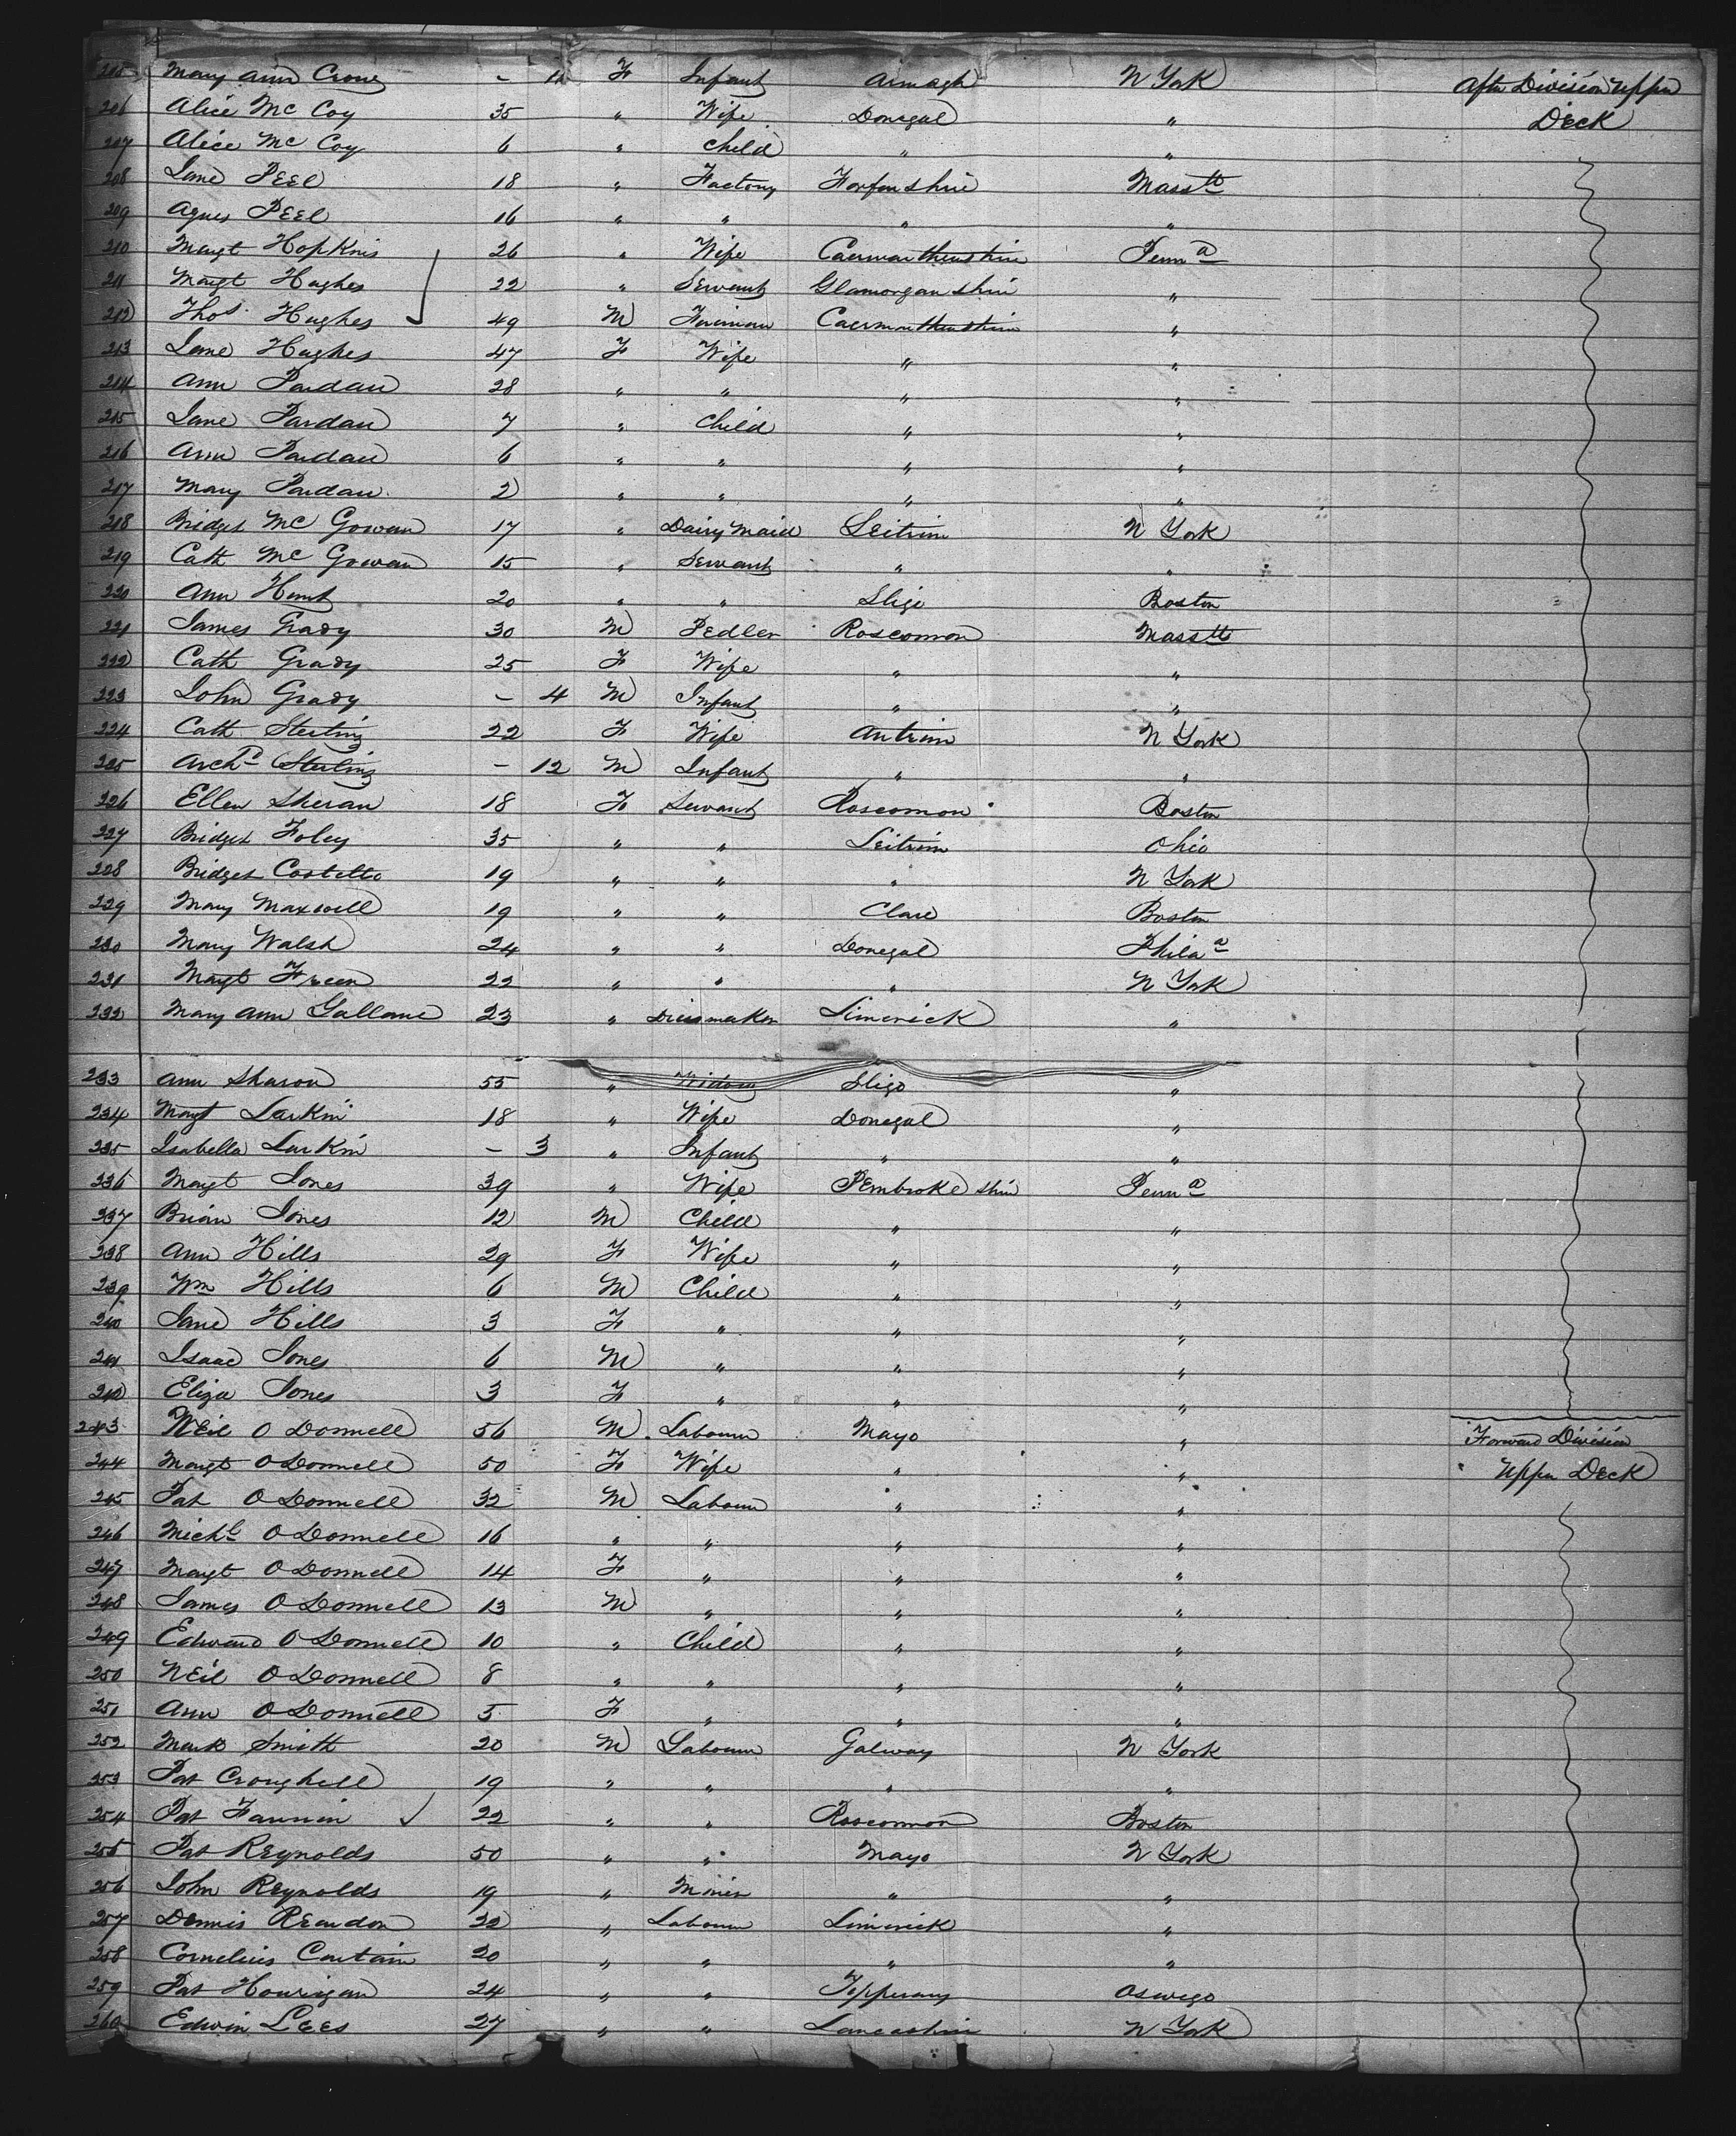 205 Mary Ann Crone - 11 F Infant Armagh N York After Division Upper
206 Alice Mc Coy 35 " Wife Donegal " Deck
207 Alice Mc Coy 6 " Child " "
208 Jane Peel 18 " Factory Forfarshire Masstts
209 Agnes Peel 16 " " " "
210 Margt Hopkins 26 " Wife Caermarthenshire Penna
211 Margt Hughes 22 " Servant Glamorganshire "
212 Thos Hughes 49 M Caermarthenshire "
213 Jane Hughes 47 F Wife " "
214 Ann Pardau 28 " " " "
215 Jane Pardau 7 " Child " "
216 Ann Pardau 6 " " " "
217 Mary Pardau 2 " " " "
218 Bridget Mc Gowan 17 " Dairy Maid Leitrim N York
219 Cath Mc Gowan 15 " Servant " "
220 Ann Hunt 20 " " Sligo Boston
221 James Grady 30 M Pedler Roscomon Masstts
222 Cath Grady 25 F Wife " "
223 John Grady - 4 M Infant " "
224 Cath Sterling 22 F Wife Antrim N York
225 Archd Sterling - 12 M Infant " "
226 Ellen Sheran 18 F Servant Roscomon Boston
227 Bridget Foley 35 " " Leitrim Ohio
228 Bridget Costello 19 " " " N York
229 Mary Maxwell 19 " " Clare Boston
230 Mary Walsh 24 " " Donegal Phila
231 Margt Freen 22 " " " N York
232 Mary Ann Gallane 23 " Dressmaker Limerick "
233 Ann Sharon 55 " Widow Sligo "
234 Margt Larkin 18 " Wife Donegal "
235 Isabella Larkin - 3 " Infant " "
236 Margt Jones 39 " Wife Pembroke shire Penna
237 Brian Jones 12 M Child " "
238 Ann Hills 29 F Wife " "
239 Wm Hills 6 M Child " "
240 Jane Hills 3 F " " "
241 Isaac Jones 6 M " " "
242 Eliza Jones 3 F " " "
243 Neil O Donnell 56 M Labourer Mayo " Forward Division
244 Margt O Donnell 50 F Wife " " Upper Deck
245 Pat O Donnell 32 M Labourer " "
246 Michl O Donnell 16 " " " "
247 Margt O Donnell 14 F " " "
248 James O Donnell 13 M " " "
249 Edward O Donnell 10 " Child " "
250 Neil O Donnell 8 " " " "
251 Ann O Donnell 5 F " " "
252 Mark Smith 20 M Labourer Galway N York
253 Pat Croughell 19 " " " "
254 Pat Fannin 22 " " Roscommon Boston
255 Pat Reynolds 50 " " Mayo N York
256 John Reynolds 19 " Miner " "
257 Dennis Reardon 22 " Labourer Limerick "
258 Cornelius Curtain 20 " " " "
259 Pat Hourigan 24 " " Tipperary Oswego
260 Edwin Lees 27 " " Lancashire N York